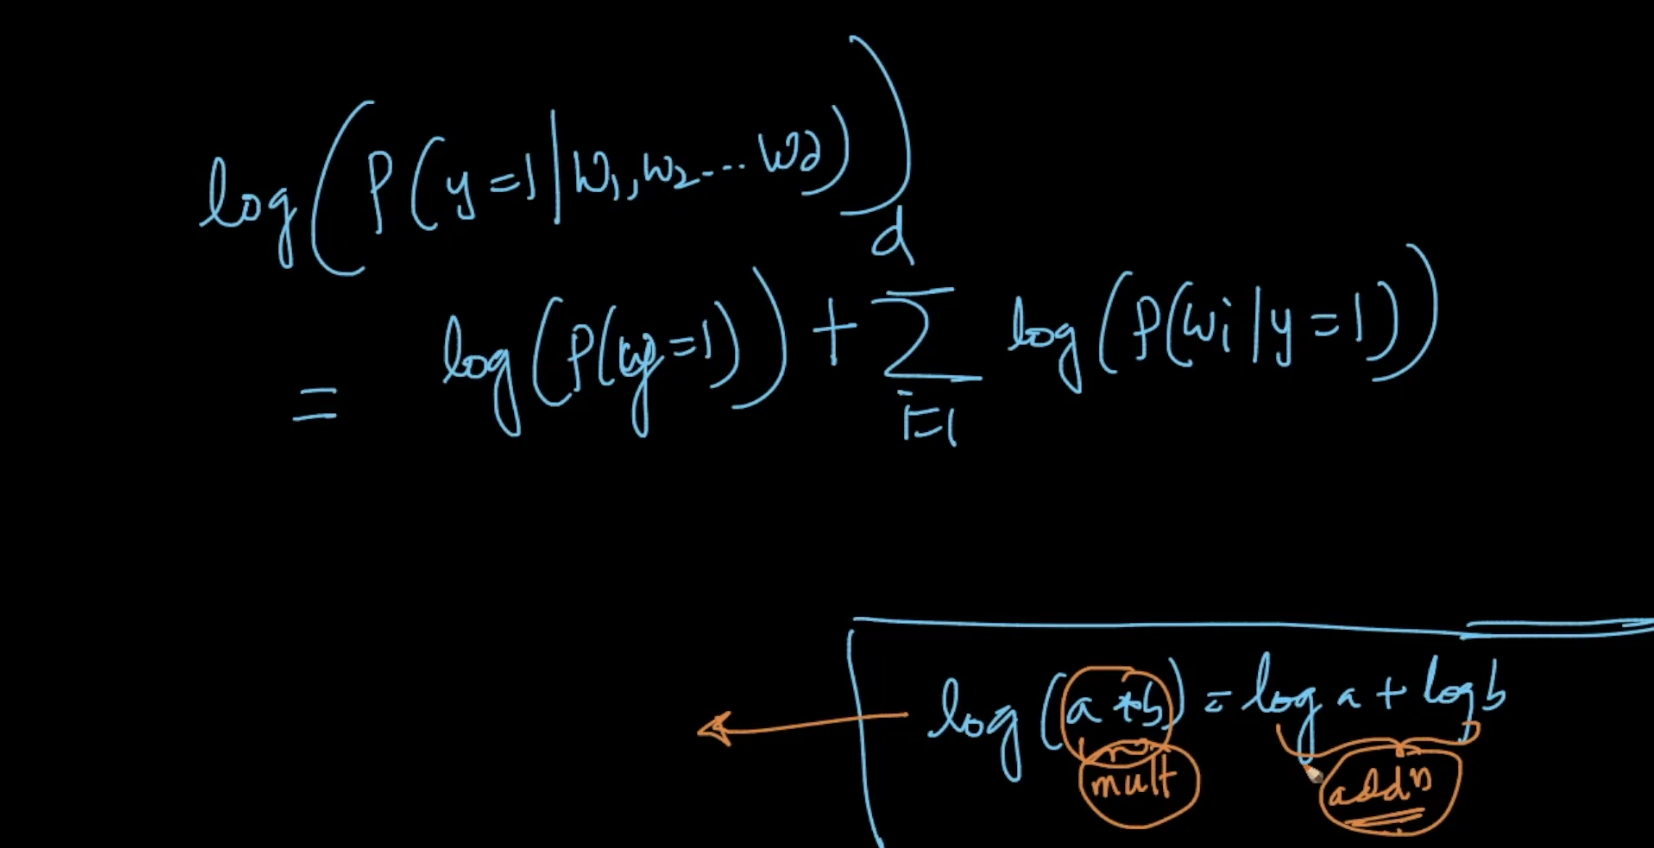 log(P(y=1|w₁,w₂...w_d))
= log(P(y=1)) + ∑_{i=1}^{d} log(P(wi|y=1))
log(a*b) = log a + log b
mult addn